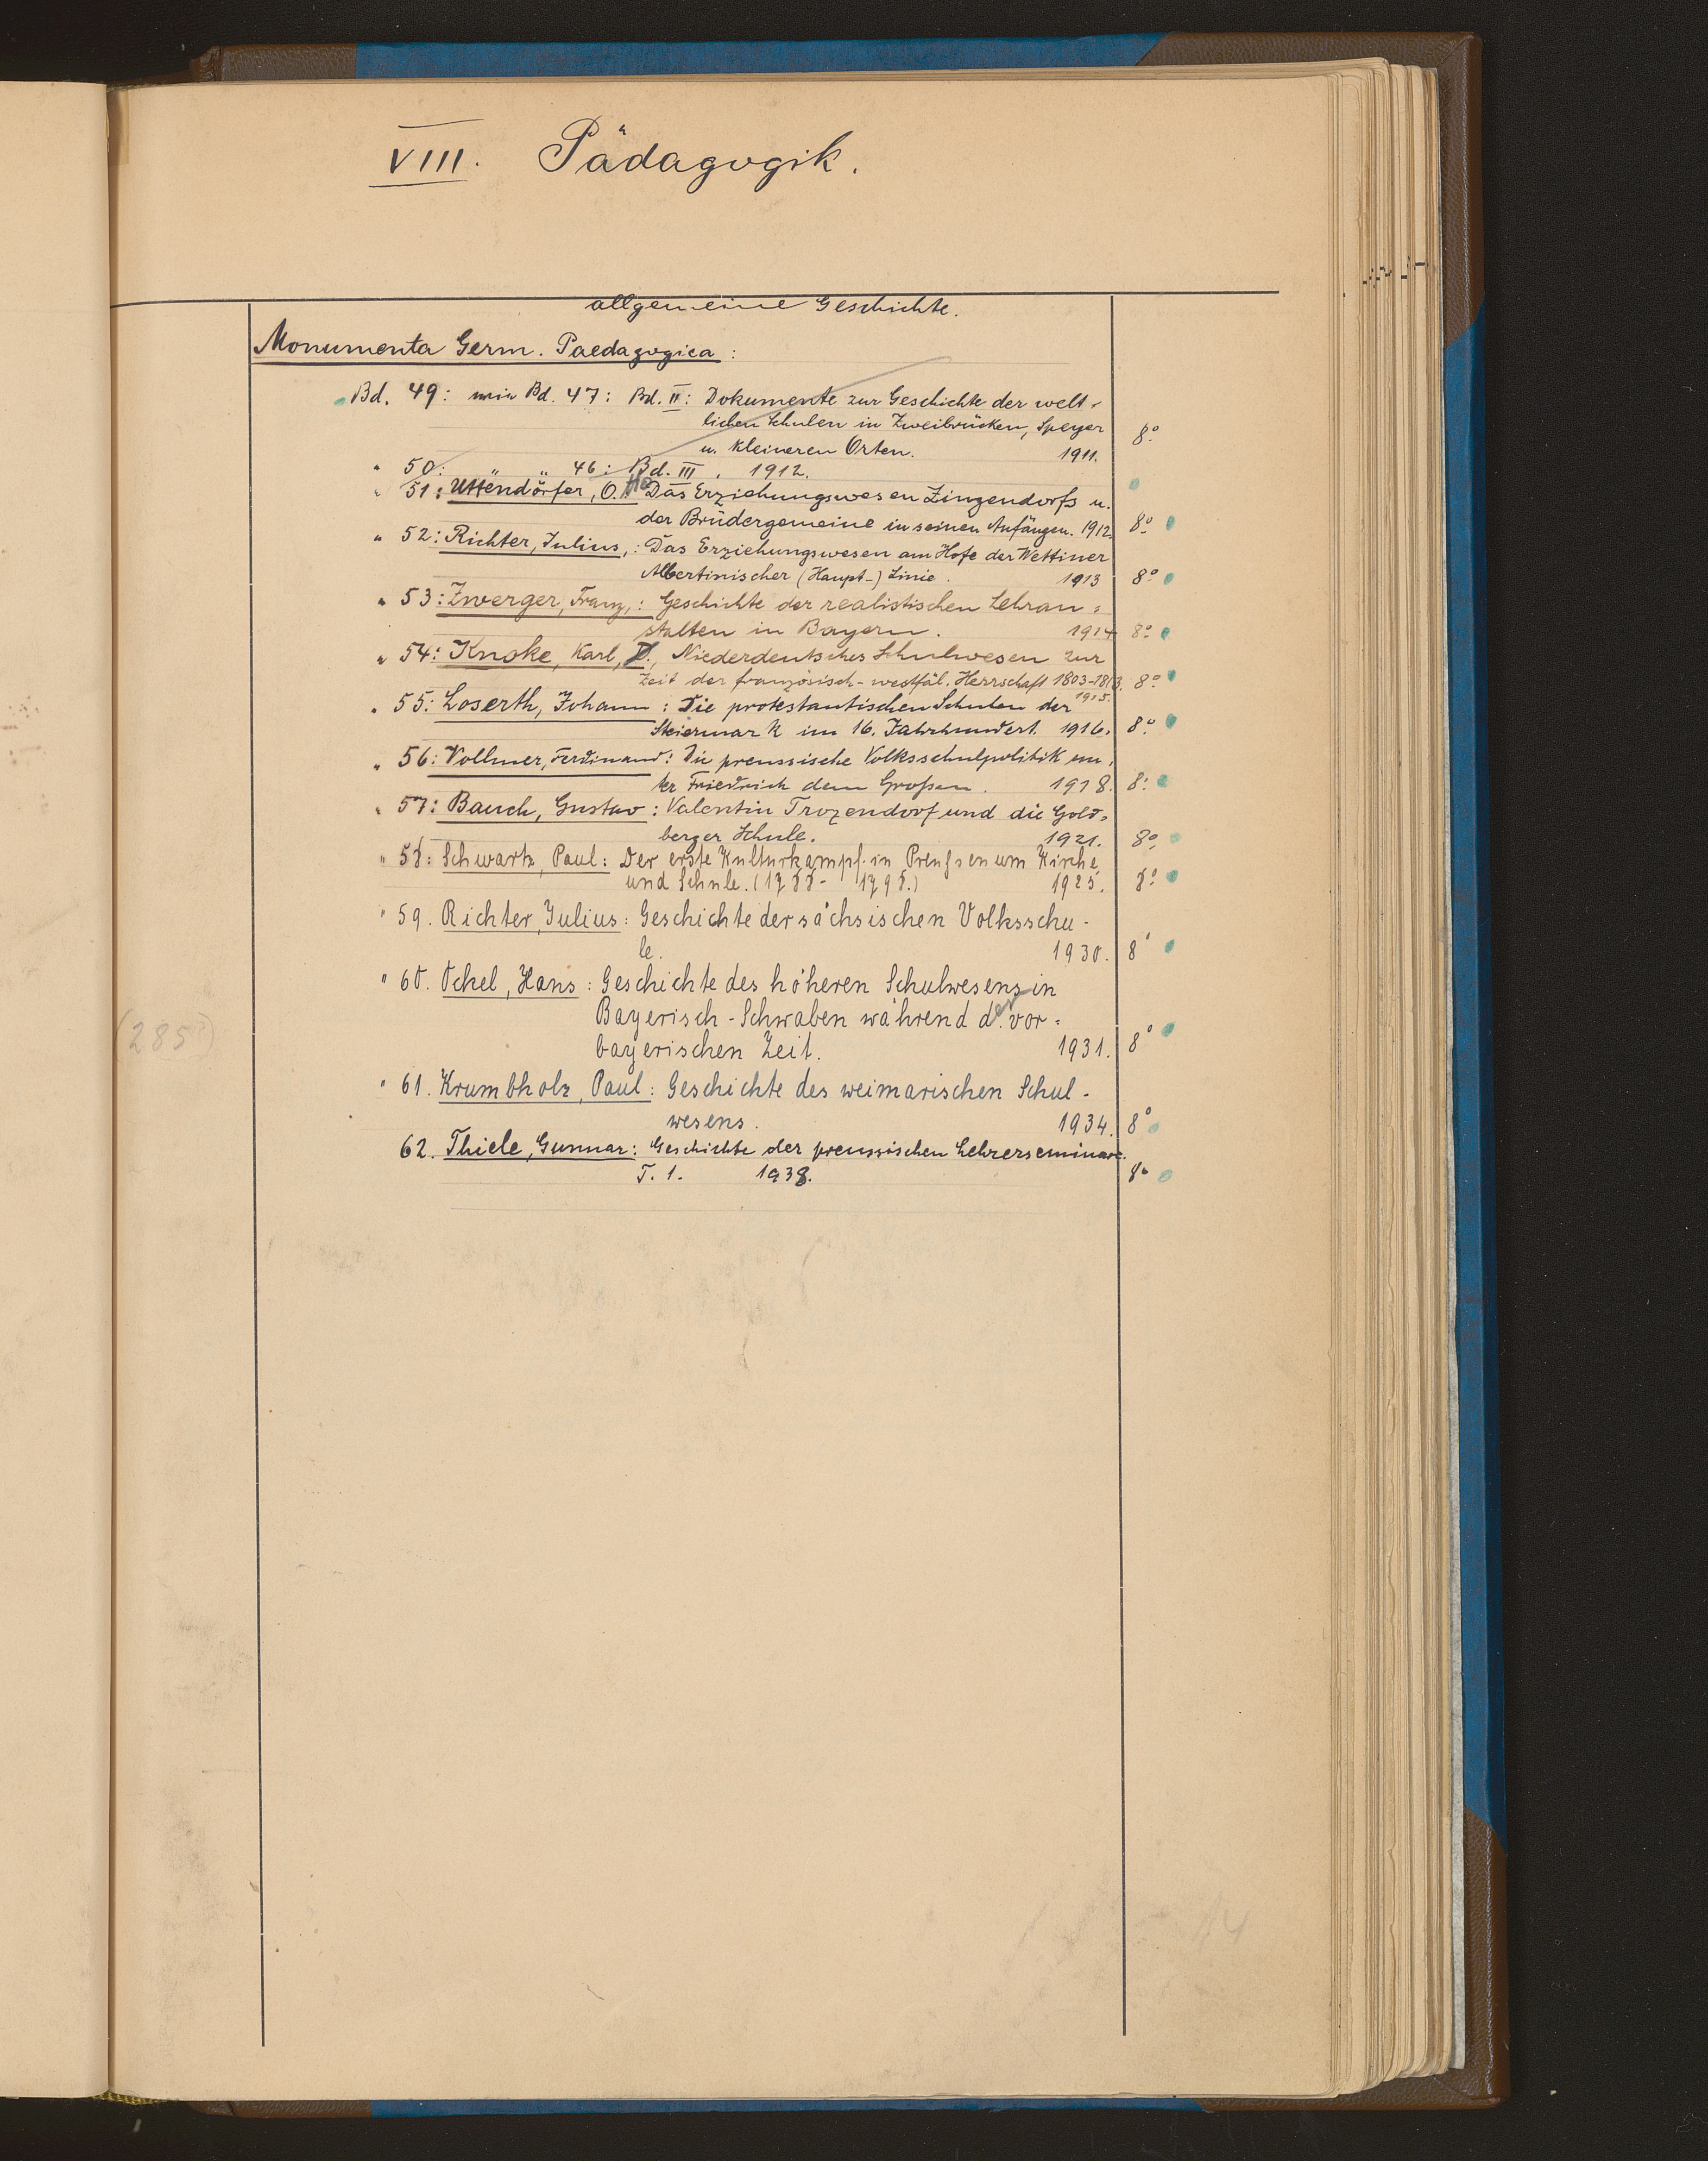 VIII. Pädagogik.
allgemeine Geschichte.
Monumenta Germ. Paedagogica:
Bd. 49: wie Bd. 47: Bd. II: Dokumente zur Geschichte der welt-
lichen Schulen in Zweibrücken, Speyer
u. kleineren Orten. 1911. 8°
" 50: " " 46: Bd. III. 1912.
" 51: Uttendörfer, O. Das Erziehungswesen Zinzendorfs u.
der Brüdergemeine in seinen Anfängen. 1912. 8°
" 52: Richter, Julius,: Das Erziehungswesen am Hofe der Wettiner
Albertinischer (Haupt-) Linie. 1913 8°
" 53: Zwerger, Franz,: Geschichte der realistischen Lehran=
stalten in Bayern. 1914 8°
" 54: Knoke, Karl, D., Niederdeutsches Schulwesen zur
Zeit der französisch-westfäl. Herrschaft 1803-1813. 8°
1915.
" 55: Loserth, Johann: Die protestantischen Schulen der
Steiermark im 16. Jahrhundert. 1916. 8°
" 56: Vollmer, Ferdinand: Die preussische Volksschulpolitik un-
ter Friedrich dem Großen. 1918. 8°
" 57: Bauch, Gustav: Valentin Trozendorf und die Gold=
berger Schule. 1921. 8°
" 58: Schwartz, Paul: Der erste Kulturkampf in Preußen um Kirche
und Schule. (1788-1798.) 1925. 8°
" 59. Richter, Julius: Geschichte der sächsischen Volksschu-
le. 1930. 8°
" 60. Ockel, Hans: Geschichte des höheren Schulwesens in
Bayerisch-Schwaben während der vor=
bayerischen Zeit. 1931. 8°
(285)
" 61. Krumbholz, Paul: Geschichte des weimarischen Schul-
wesens. 1934. 8°
62. Thiele, Gunnar: Geschichte der preussischen Lehrerseminare.
T. 1. 1938. 8°